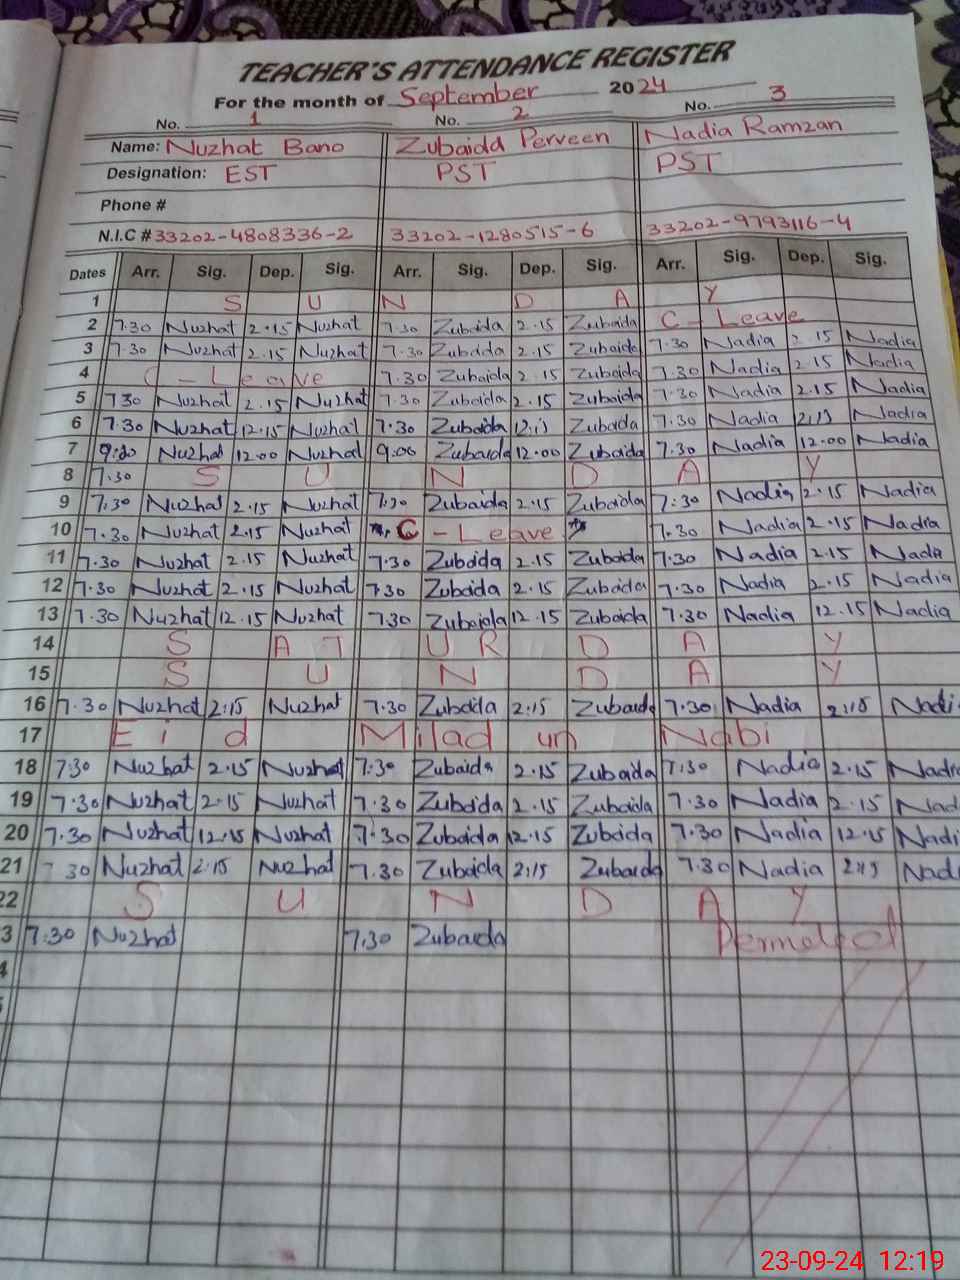 TEACHER'S ATTENDANCE REGISTER
For the month of September 2024
No. 1 No. 2 No. 3
Name: Nuzhat Bano Zubaida Perveen Nadia Ramzan
Designation: EST PST PST
Phone #
N.I.C # 33202-4808336-2 33202-1280515-6 33202-9793116-4
Dates Arr. Sig. Dep. Sig. Arr. Sig. Dep. Sig. Arr. Sig. Dep. Sig.
1 S U N D A Y
2 7.30 Nuzhat 2.15 Nuzhat 7.30 Zubaida 2.15 Zubaida C - Leave
3 7.30 Nuzhat 2.15 Nuzhat 7.30 Zubaida 2.15 Zubaida 7.30 Nadia 2.15 Nadia
4 C - Leave 7.30 Zubaida 2.15 Zubaida 7.30 Nadia 2.15 Nadia
5 730 Nuzhat 2.15 Nuzhat 7.30 Zubaida 2.15 Zubaida 7.30 Nadia 2.15 Nadia
6 7.30 Nuzhat 12.15 Nuzhat 7.30 Zubaida Zubaida 7.30 Nadia Nadia
7 Nuzhat 12.00 Nuzhat 9:00 Zubaida 12.00 Zubaida 7.30 Nadia 12.00 Nadia
8 7.30 S U N D A Y
9 7:30 Nuzhat 2.15 Nuzhat 7:30 Zubaida 2.15 Zubaida 7:30 Nadia 2.15 Nadia
10 7.30 Nuzhat 2.15 Nuzhat C - Leave 7.30 Nadia 2.15 Nadia
11 7.30 Nuzhat 2.15 Nuzhat 7.30 Zubaida 2.15 Zubaida 7.30 Nadia 2.15 Nadia
12 7.30 Nuzhat 2.15 Nuzhat 730 Zubaida 2.15 Zubaida 7.30 Nadia 2.15 Nadia
13 7.30 Nuzhat 12.15 Nuzhat 7.30 Zubaida 12.15 Zubaida 7.30 Nadia 12.15 Nadia
14 S A T U R D A Y
15 S U N D A Y
16 7.30 Nuzhat 2:15 Nuzhat 7.30 Zubaida 2:15 Zubaida 7.30 Nadia 2:15 Nadi
17 Eid Milad un Nabi
18 7:30 Nuzhat 2.15 Nuzhat 7:30 Zubaida 2.15 Zubaida 7:30 Nadia 2.15 Nadi
19 7.30 Nuzhat 2.15 Nuzhat 7.30 Zubaida 2.15 Zubaida 7.30 Nadia 2.15 Nad
20 7.30 Nuzhat 12.15 Nuzhat 7.30 Zubaida 12.15 Zubaida 7.30 Nadia 12.15 Nadi
21 7 30 Nuzhat 2:15 Nuzhat 7.30 Zubaida 2:15 Zubaida 7.30 Nadia 2:15 Nad
22 S U N D A Y
3 7:30 Nuzhat 7.30 Zubaida
4
5
23-09-24 12:19